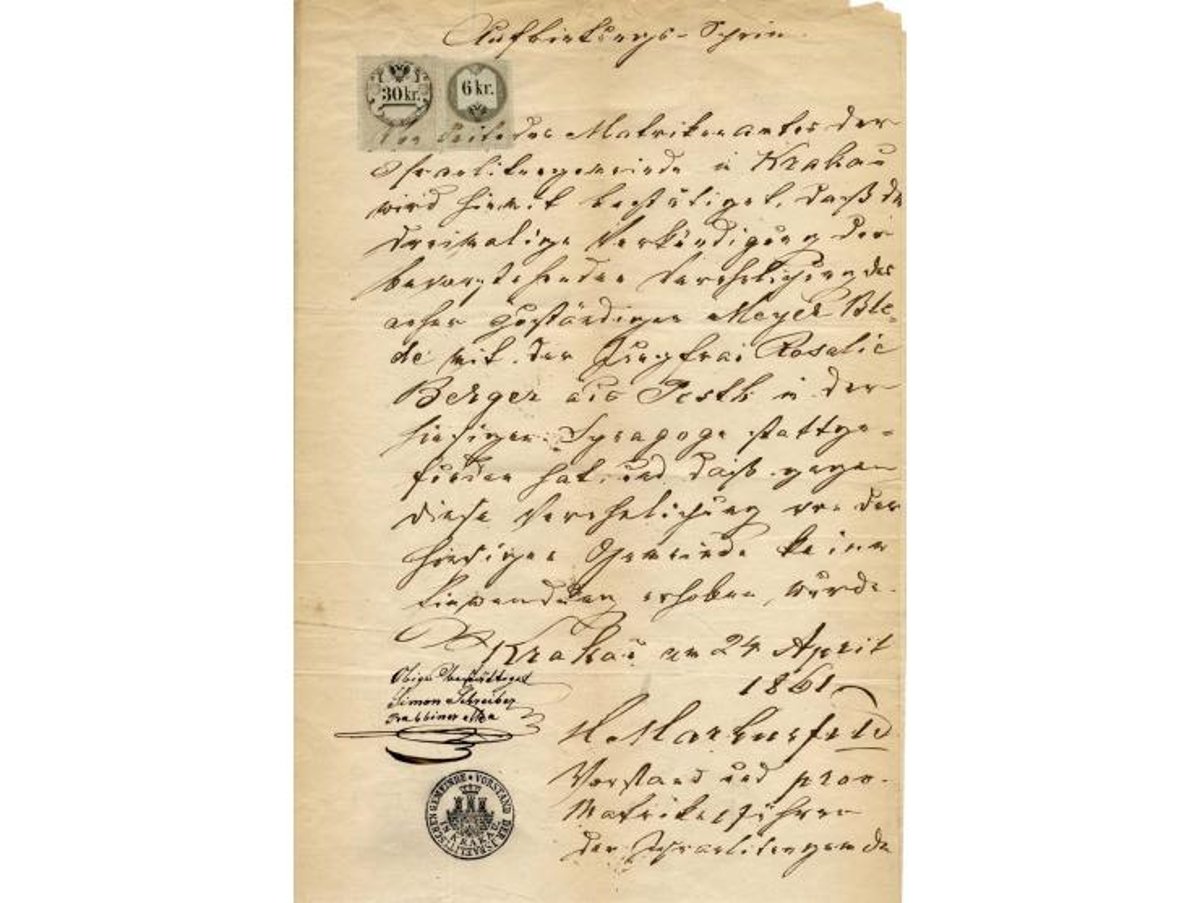 Aufbietungs-Schein.
30 kr.
6 kr.
Von Seite des Matrikenamtes der
Israelitengemeinde in Krakau
wird hiemit bestätiget, daß die
dreimalige Verkündigung der
bevorstehenden Verehelichung des
anher zuständigen Meyer Ble-
de mit der Jungfrau Rosalie
Berger aus Pesth in der
hiesigen Synagoge stattge-
funden hat, und daß gegen
diese Verehelichung von der
hiesigen Gemeinde keine
Einwendung erhoben wurde.
Krakau am 24 April
1861
Obiges bestättiget
Simon Schreiber
Rabbiner
H. Markusfeld
Vorstand und prov.
Matrikenführer
der Israelitengemde
VORSTAND DER ISRAELITISCHEN GEMEINDE
IN KRAKAU